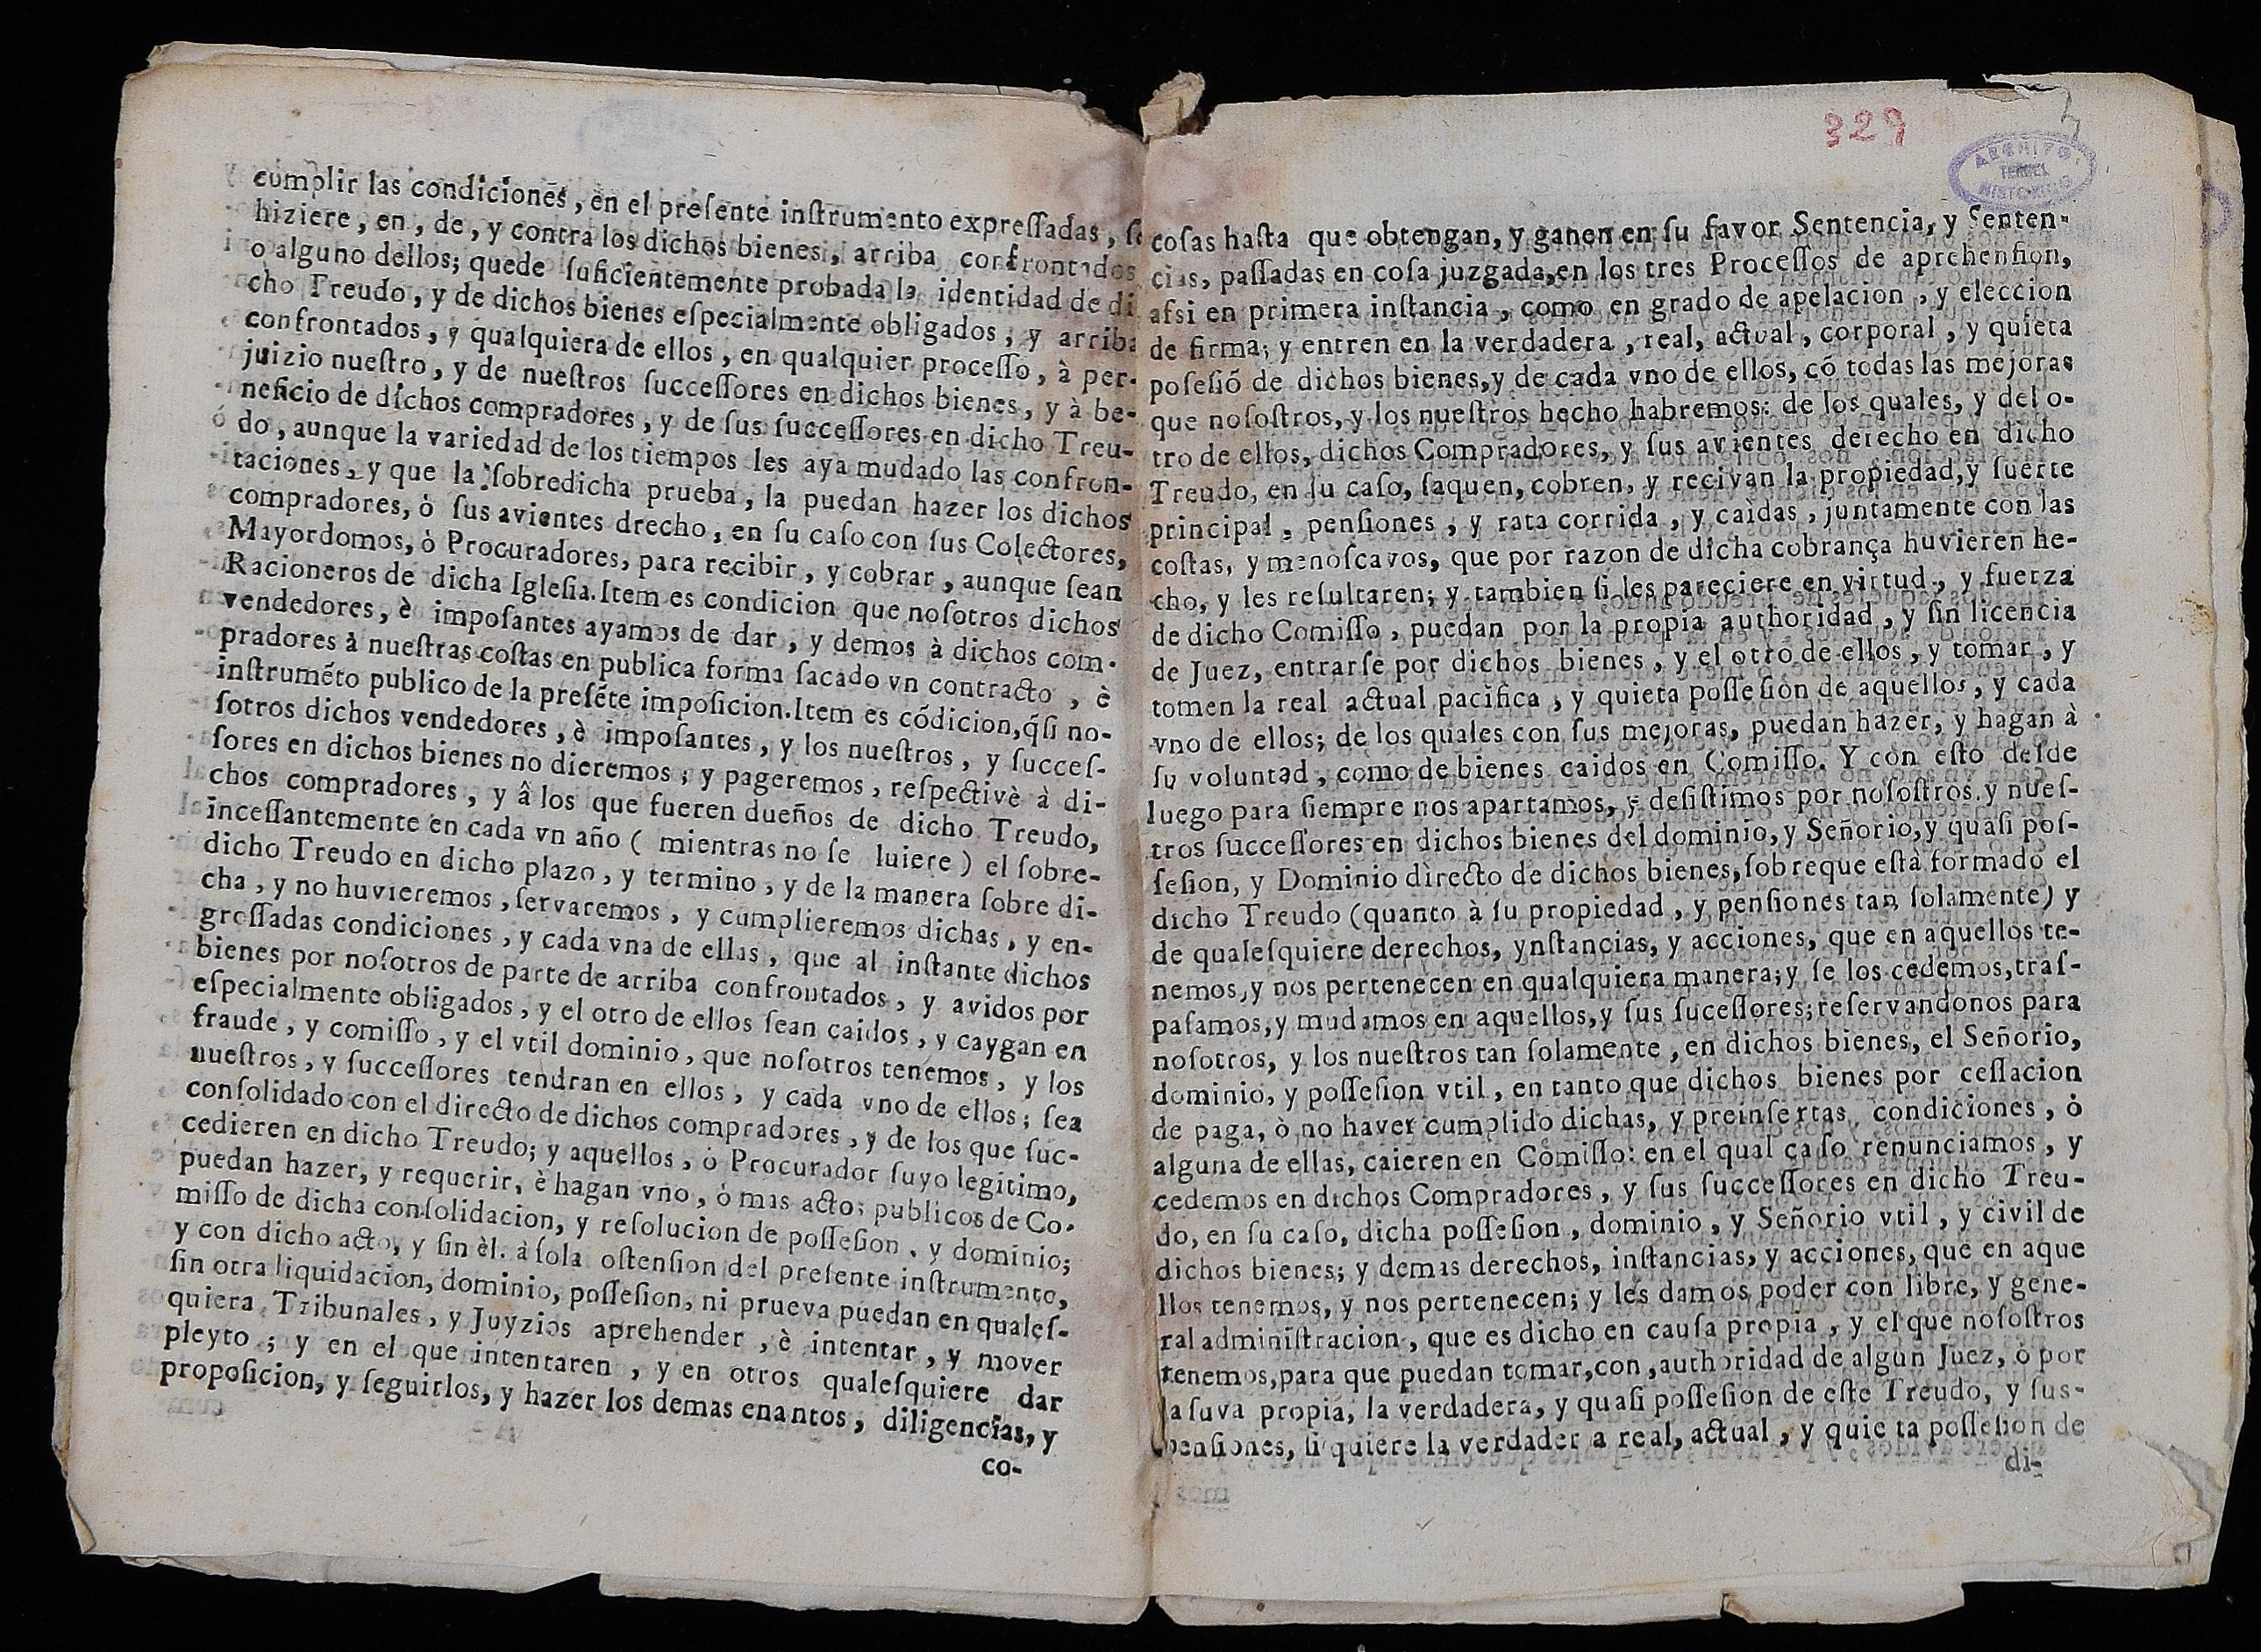 cumplir las condicionēs, en el preſente inſtrumento expreſſadas, ſe
hiziere, en, de, y contra los dichos bienes, arriba confrontados
o alguno dellos; quede ſuficientemente probada la identidad de di
cho Treudo, y de dichos bienes eſpecialmente obligados, y arriba
confrontados, y qualquiera de ellos, en qualquier proceſſo, à per-
juizio nueſtro, y de nueſtros ſucceſſores en dichos bienes, y à be-
neficio de dichos compradores, y de ſus ſucceſſores en dicho Treu-
do, aunque la variedad de los tiempos les aya mudado las confron-
taciones, y que la ſobredicha prueba, la puedan hazer los dichos
compradores, ò ſus avientes drecho, en ſu caſo con ſus Colectores,
Mayordomos, ò Procuradores, para recibir, y cobrar, aunque ſean
Racioneros de dicha Igleſia. Item es condicion que noſotros dichos
vendedores, è impoſantes ayamos de dar, y demos à dichos com-
pradores à nueſtras coſtas en publica forma ſacado vn contracto, è
inſtruméto publico de la preſéte impoſicion. Item es códicion, q́ſi no-
ſotros dichos vendedores, è impoſantes, y los nueſtros, y ſucceſ-
ſores en dichos bienes no dieremos, y pageremos, reſpectivè à di-
chos compradores, y â los que fueren dueños de dicho Treudo,
inceſſantemente en cada vn año ( mientras no ſe luiere ) el ſobre-
dicho Treudo en dicho plazo, y termino, y de la manera ſobre di-
cha, y no huvieremos, ſervaremos, y cumplieremos dichas, y en-
greſſadas condiciones, y cada vna de ellas, que al inſtante dichos
bienes por noſotros de parte de arriba confrontados, y avidos por
eſpecialmente obligados, y el otro de ellos ſean caidos, y caygan en
fraude, y comiſſo, y el vtil dominio, que noſotros tenemos, y los
nueſtros, y ſucceſſores tendran en ellos, y cada vno de ellos; ſea
conſolidado con el directo de dichos compradores, y de los que ſuc-
cedieren en dicho Treudo; y aquellos, ò Procurador ſuyo legitimo,
puedan hazer, y requerir, è hagan vno, ò mas actos publicos de Co-
miſſo de dicha conſolidacion, y reſolucion de poſſeſion, y dominio;
y con dicho acto, y ſin èl, à ſola oſtenſion del preſente inſtrumento,
ſin otra liquidacion, dominio, poſſeſion, ni prueva puedan en qualeſ-
quiera Tribunales, y Juyzios aprehender, è intentar, y mover
pleyto; y en el que intentaren, y en otros qualeſquiere dar
propoſicion, y ſeguirlos, y hazer los demas enantos, diligencias, y
co-
329
ARCHIVO
TERUEL
HISTORICO
coſas haſta que obtengan, y ganen en ſu favor Sentencia, y Senten-
cias, paſſadas en coſa juzgada, en los tres Proceſſos de aprehenſion,
aſsi en primera inſtancia, como en grado de apelacion, y eleccion
de firma; y entren en la verdadera, real, actual, corporal, y quieta
poſeſió de dichos bienes, y de cada vno de ellos, có todas las mejoras
que noſoſtros, y los nueſtros hecho habremos: de los quales, y del o-
tro de ellos, dichos Compradores, y ſus avientes derecho en dicho
Treudo, en ſu caſo, ſaquen, cobren, y recivan la propiedad, y ſuerte
principal, penſiones, y rata corrida, y caìdas, juntamente con las
coſtas, y menoſcavos, que por razon de dicha cobrança huvieren he-
cho, y les reſultaren; y tambien ſi les pareciere en virtud, y fuerza
de dicho Comiſſo, puedan por la propia authoridad, y ſin licencia
de Juez, entrarſe por dichos bienes, y el otro de ellos, y tomar, y
tomen la real actual pacifica, y quieta poſſeſion de aquellos, y cada
vno de ellos; de los quales con ſus mejoras, puedan hazer, y hagan à
ſu voluntad, como de bienes caidos en Comiſſo. Y con eſto deſde
luego para ſiempre nos apartamos, y deſiſtimos por noſoſtros, y nueſ-
tros ſucceſſores en dichos bienes del dominio, y Señorio, y quaſi poſ-
ſeſion, y Dominio dìrecto de dichos bienes, ſobreque eſtà formado el
dicho Treudo (quanto à ſu propiedad, y penſiones tan ſolamente) y
de qualeſquiere derechos, ynſtancias, y acciones, que en aquellos te-
nemos, y nos pertenecen en qualquiera manera; y ſe los cedemos, traſ-
paſamos, y mudamos en aquellos, y ſus ſuceſſores; reſervandonos para
noſotros, y los nueſtros tan ſolamente, en dichos bienes, el Señorio,
dominio, y poſſeſion vtil, en tanto que dichos bienes por ceſſacion
de paga, ò no haver cumplido dichas, y preinſertas condiciones, ò
alguna de ellas, caieren en Comiſſo: en el qual caſo renunciamos, y
cedemos en dichos Compradores, y ſus ſucceſſores en dicho Treu-
do, en ſu caſo, dicha poſſeſion, dominio, y Señorio vtil, y civil de
dichos bienes; y demas derechos, inſtancias, y acciones, que en aque
llos tenemos, y nos pertenecen; y les damos poder con libre, y gene-
ral adminiſtracion, que es dicho en cauſa propia, y el que noſoſtros
tenemos, para que puedan tomar, con, authoridad de algun Juez, ò por
la ſuya propia, la verdadera, y quaſi poſſeſion de eſte Treudo, y ſus-
penſiones, ſi quiere la verdader a real, actual, y quie ta poſſeſion de
di-